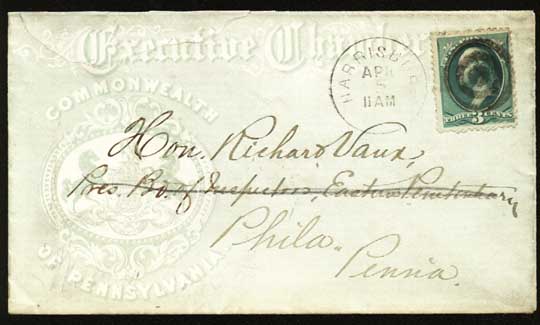 Executive Chamber
COMMONWEALTH
OF PENNSYLVANIA
HARRISBURG
APR
5
11AM
THREE 3 CENTS
Hon. Richard Vaux,
Pres. Bd. of Inspectors, Eastern Penitentiary
Phila.
Penna.